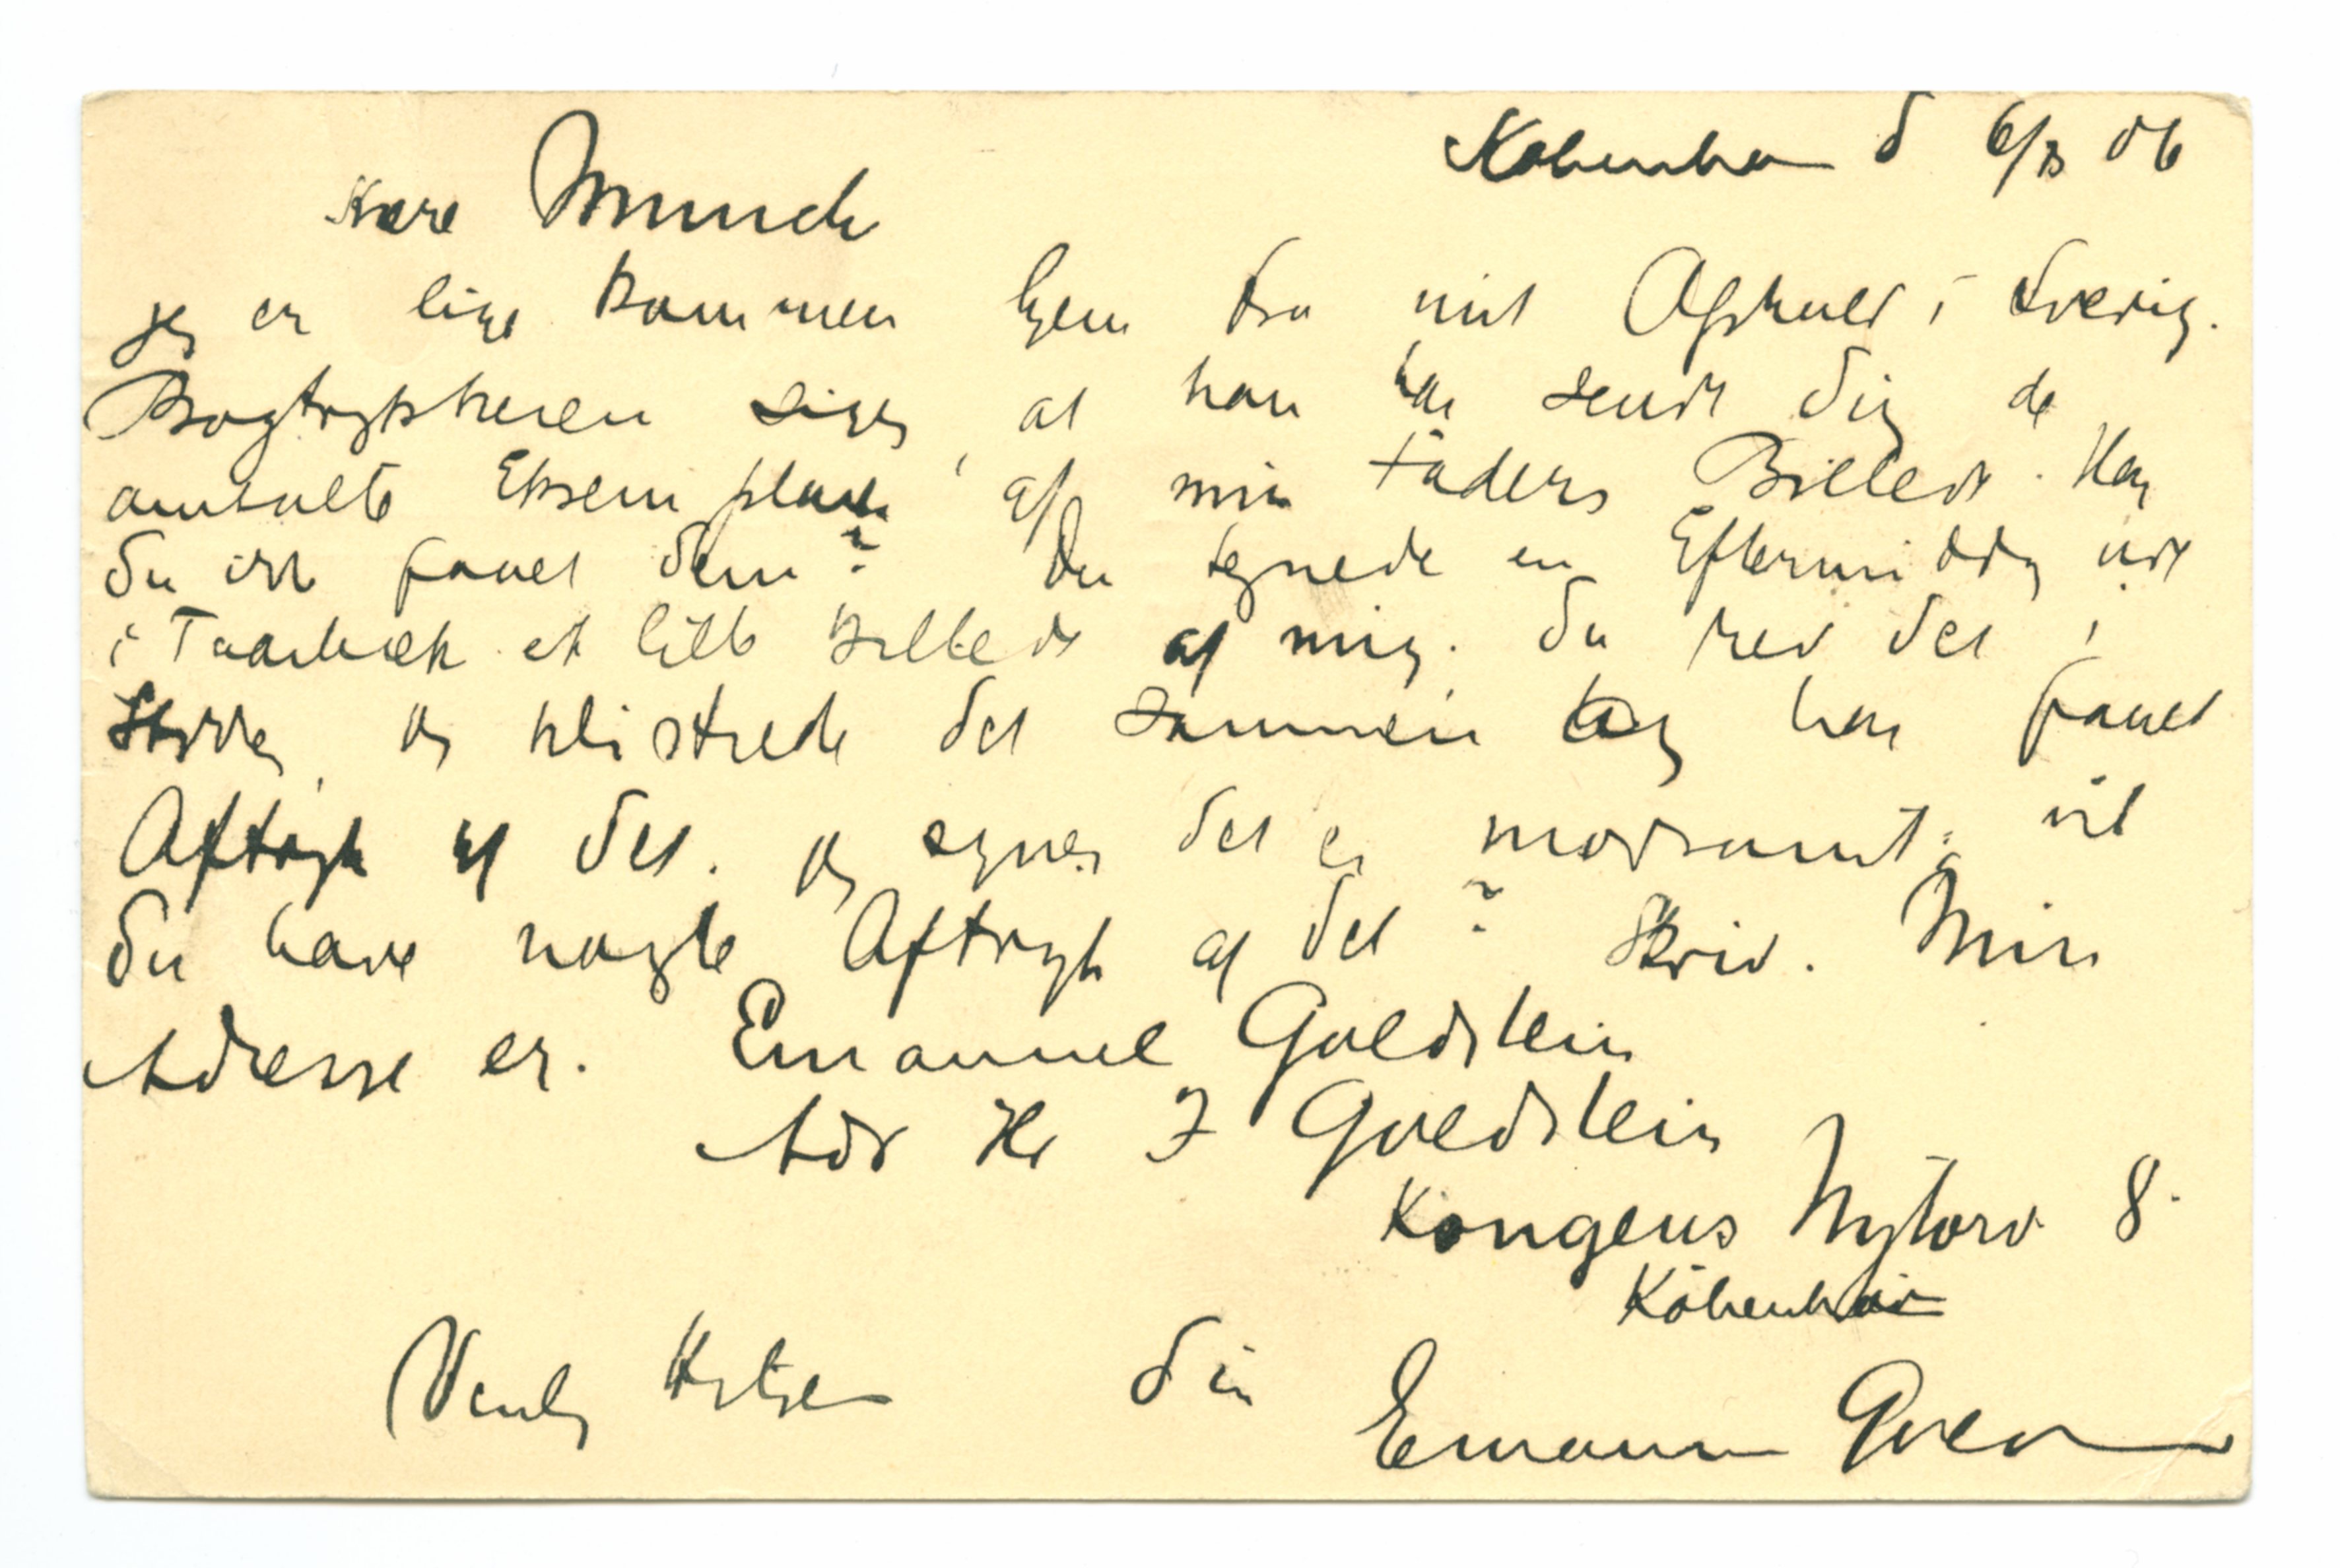 København d 6/8 06
Kære Munch
jeg er lige kommen hjem fra mit Ophold i Sverig.
Bogtrykkeren siger, at han har sendt dig de
omtalte Eksemplarer af min Faders Billede. Har
du ikke faaet dem? Du tegnede en Eftermiddag ude
i Taarbæk et lille Billede af mig. Du rev det i
Stykker og klistrede det sammen og har faaet
Aftryk af det. Jeg synes det er morsomt; vil
du have nogle Aftryk af det? Skriv. Min
Adresse er. Emanuel Goldstein
Adr Hr J Goldstein
Kongens Nytorv 8.
København
Venlig Hilsen din
Emanuel Goldstein